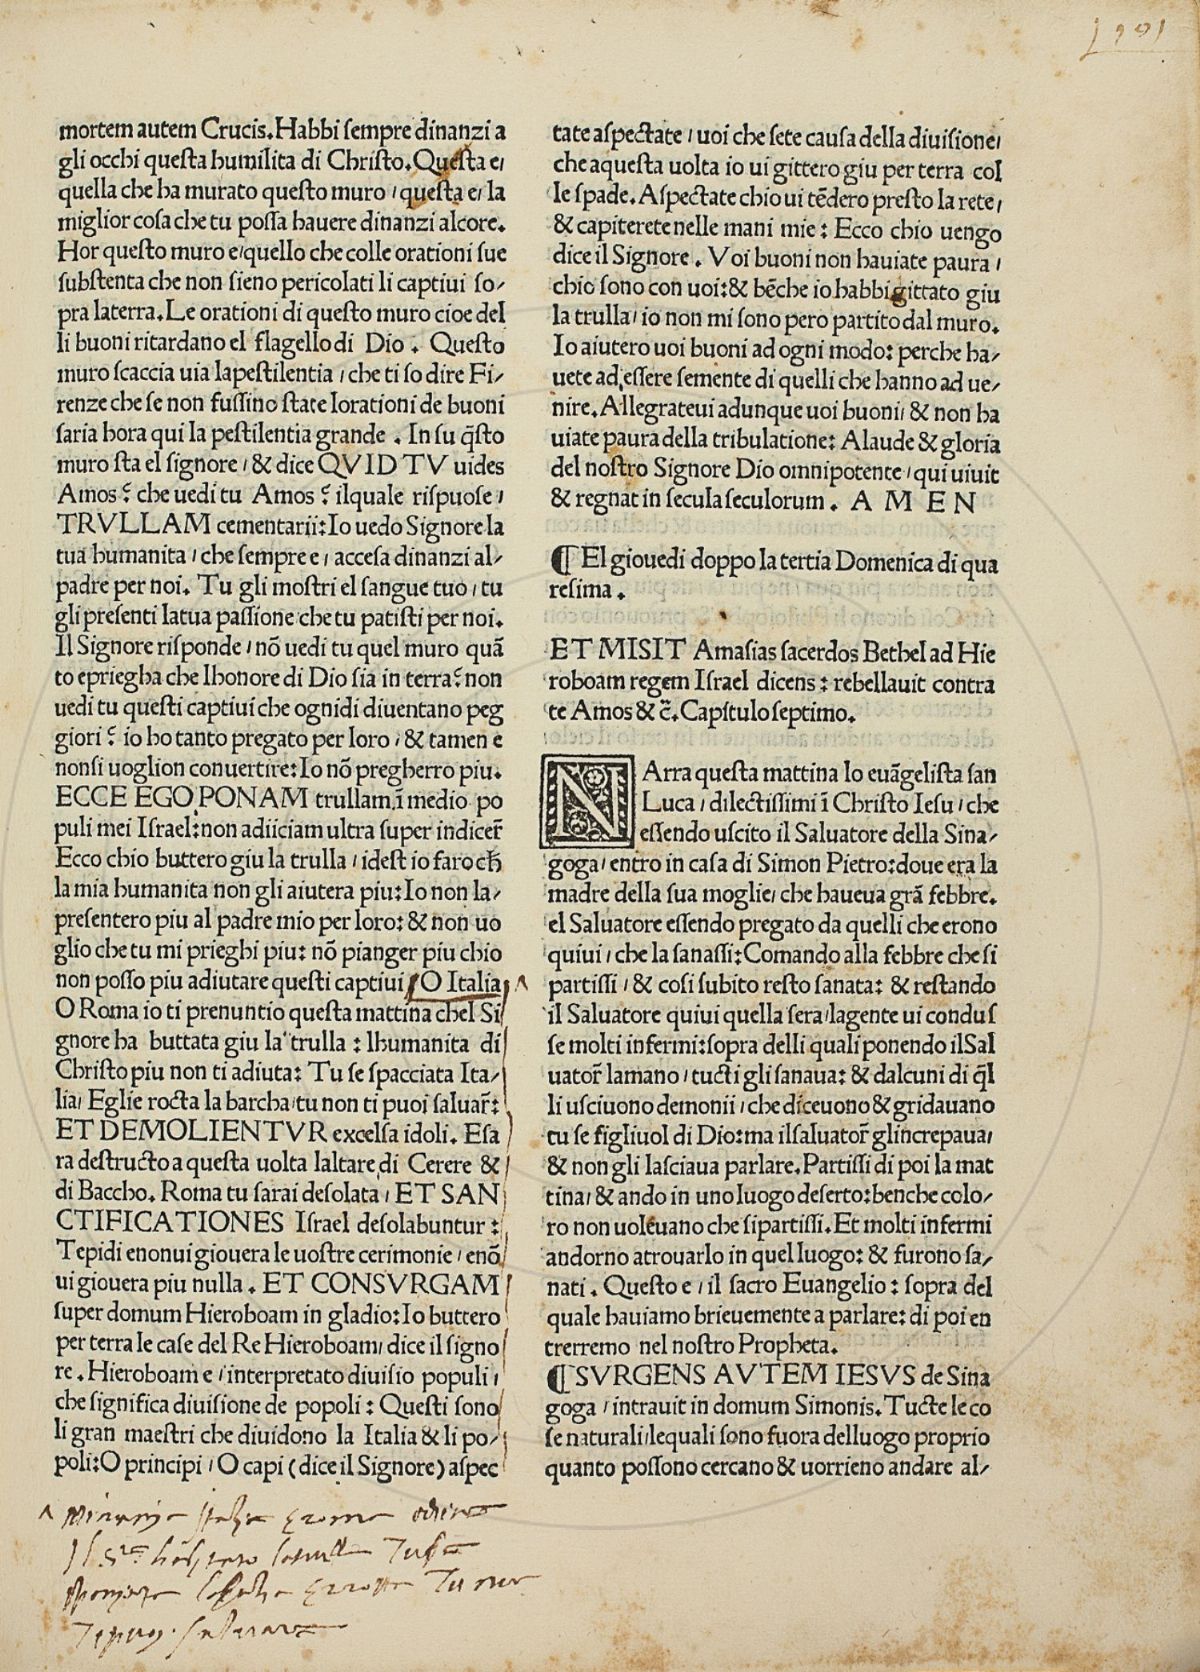 mortem autem Crucis. Habbi sempre dinanzi a
gli occhi questa humilita di Christo. Questa e/
quella che ha murato questo muro / questa e/ la
miglior cosa che tu possa hauere dinanzi alcore.
Hor questo muro e/quello che colle orationi sue
substenta che non sieno pericolati li captiui so/
pra laterra. Le orationi di questo muro cioe del
li buoni ritardano el flagello di Dio . Questo
muro scaccia uia lapestilentia / che ti so dire Fi/
renze che se non fussino state lorationi de buoni
saria hora qui la pestilentia grande . In su q̃sto
muro sta el signore / & dice QVID TV uides
Amos? che uedi tu Amos ? ilquale rispuose /
TRVLLAM cementarii: Io uedo Signore la
tua humanita / che sempre e / accesa dinanzi al/
padre per noi. Tu gli mostri el sangue tuo / tu
gli presenti latua passione che tu patisti per noi.
Il Signore risponde / nõ uedi tu quel muro quã
to epriegha che lhonore di Dio sia in terra? non
uedi tu questi captiui che ognidi diuentano peg
giori ? io ho tanto pregato per loro / & tamen e
nonsi uoglion conuertire: Io nõ pregherro piu.
ECCE EGO PONAM trullam ĩ medio po
puli mei Israel: non adiiciam ultra super indicer̃
Ecco chio buttero giu la trulla / idest io faro ch̃
la mia humanita non gli aiutera piu: Io non la/
presentero piu al padre mio per loro: & non uo
glio che tu mi prieghi piu: nõ pianger piu chio
non posso piu adiutare questi captiui / O Italia ^
O Roma io ti prenuntio questa mattina chel Si
gnore ha buttata giu la trulla : lhumanita di
Christo piu non ti adiuta: Tu se spacciata Ita/
lia/ Eglie rocta la barcha/tu non ti puoi saluar̃:
ET DEMOLIENTVR excelsa idoli. Esa
ra destructo a questa uolta laltare di Cerere &
di Baccho. Roma tu sarai desolata / ET SAN
CTIFICATIONES Israel desolabuntur :
Tepidi enonui giouera le uostre cerimonie / enõ
ui giouera piu nulla . ET CONSVRGAM
super domum Hieroboam in gladio: Io buttero
per terra le case del Re Hieroboam/ dice il signo
re . Hieroboam e / interpretato diuisio populi /
che significa diuisione de popoli : Questi sono
li gran maestri che diuidono la Italia & li po/
poli: O principi / O capi (dice il Signore) aspec
tate aspectate / uoi che sete causa della diuisione/
che aquesta uolta io ui gittero giu per terra col
le spade. Aspectate chio ui tẽdero presto la rete/
& capiterete nelle mani mie : Ecco chio uengo
dice il Signore . Voi buoni non hauiate paura /
chio sono con uoi: & bẽche io habbi gittato giu
la trulla / io non mi sono pero partito dal muro.
Io aiutero uoi buoni ad ogni modo: perche ha/
uete ad essere semente di quelli che hanno ad ue/
nire. Allegrateui adunque uoi buoni/ & non ha
uiate paura della tribulatione: Alaude & gloria
del nostro Signore Dio omnipotente / qui uiuit
& regnat in secula seculorum . A M E N
¶ El giouedi doppo la tertia Domenica di qua
resima .
ET MISIT Amasias sacerdos Bethel ad Hie
roboam regem Israel dicens : rebellauit contra
te Amos & c̃. Capitulo septimo.
NArra questa mattina lo euãgelista san
Luca / dilectissimi ĩ Christo Iesu / che
essendo uscito il Saluatore della Sina/
goga / entro in casa di Simon Pietro: doue era la
madre della sua moglie/ che haueua grã febbre.
el Saluatore essendo pregato da quelli che erono
quiui / che la sanassi: Comando alla febbre che si
partissi / & cosi subito resto sanata: & restando
il Saluatore quiui quella sera/lagente ui condus
se molti infermi: sopra delli quali ponendo ilSal
uator̃ lamano / tucti gli sanaua: & dalcuni di q̃l
li usciuono demonii / che diceuono & gridauano
tu se figliuol di Dio: ma ilsaluator̃ glincrepaua/
& non gli lasciaua parlare. Partissi di poi la mat
tina/ & ando in uno luogo deserto: benche colo/
ro non uoleuano che sipartissi. Et molti infermi
andorno atrouarlo in quel luogo: & furono sa/
nati . Questo e / il sacro Euangelio : sopra del
quale hauiamo brieuemente a parlare: di poi en
trerremo nel nostro Propheta.
¶ SVRGENS AVTEM IESVS de Sina
goga / intrauit in domum Simonis. Tucte le co
se naturali/lequali sono fuora delluogo proprio
quanto possono cercano & uorrieno andare al/